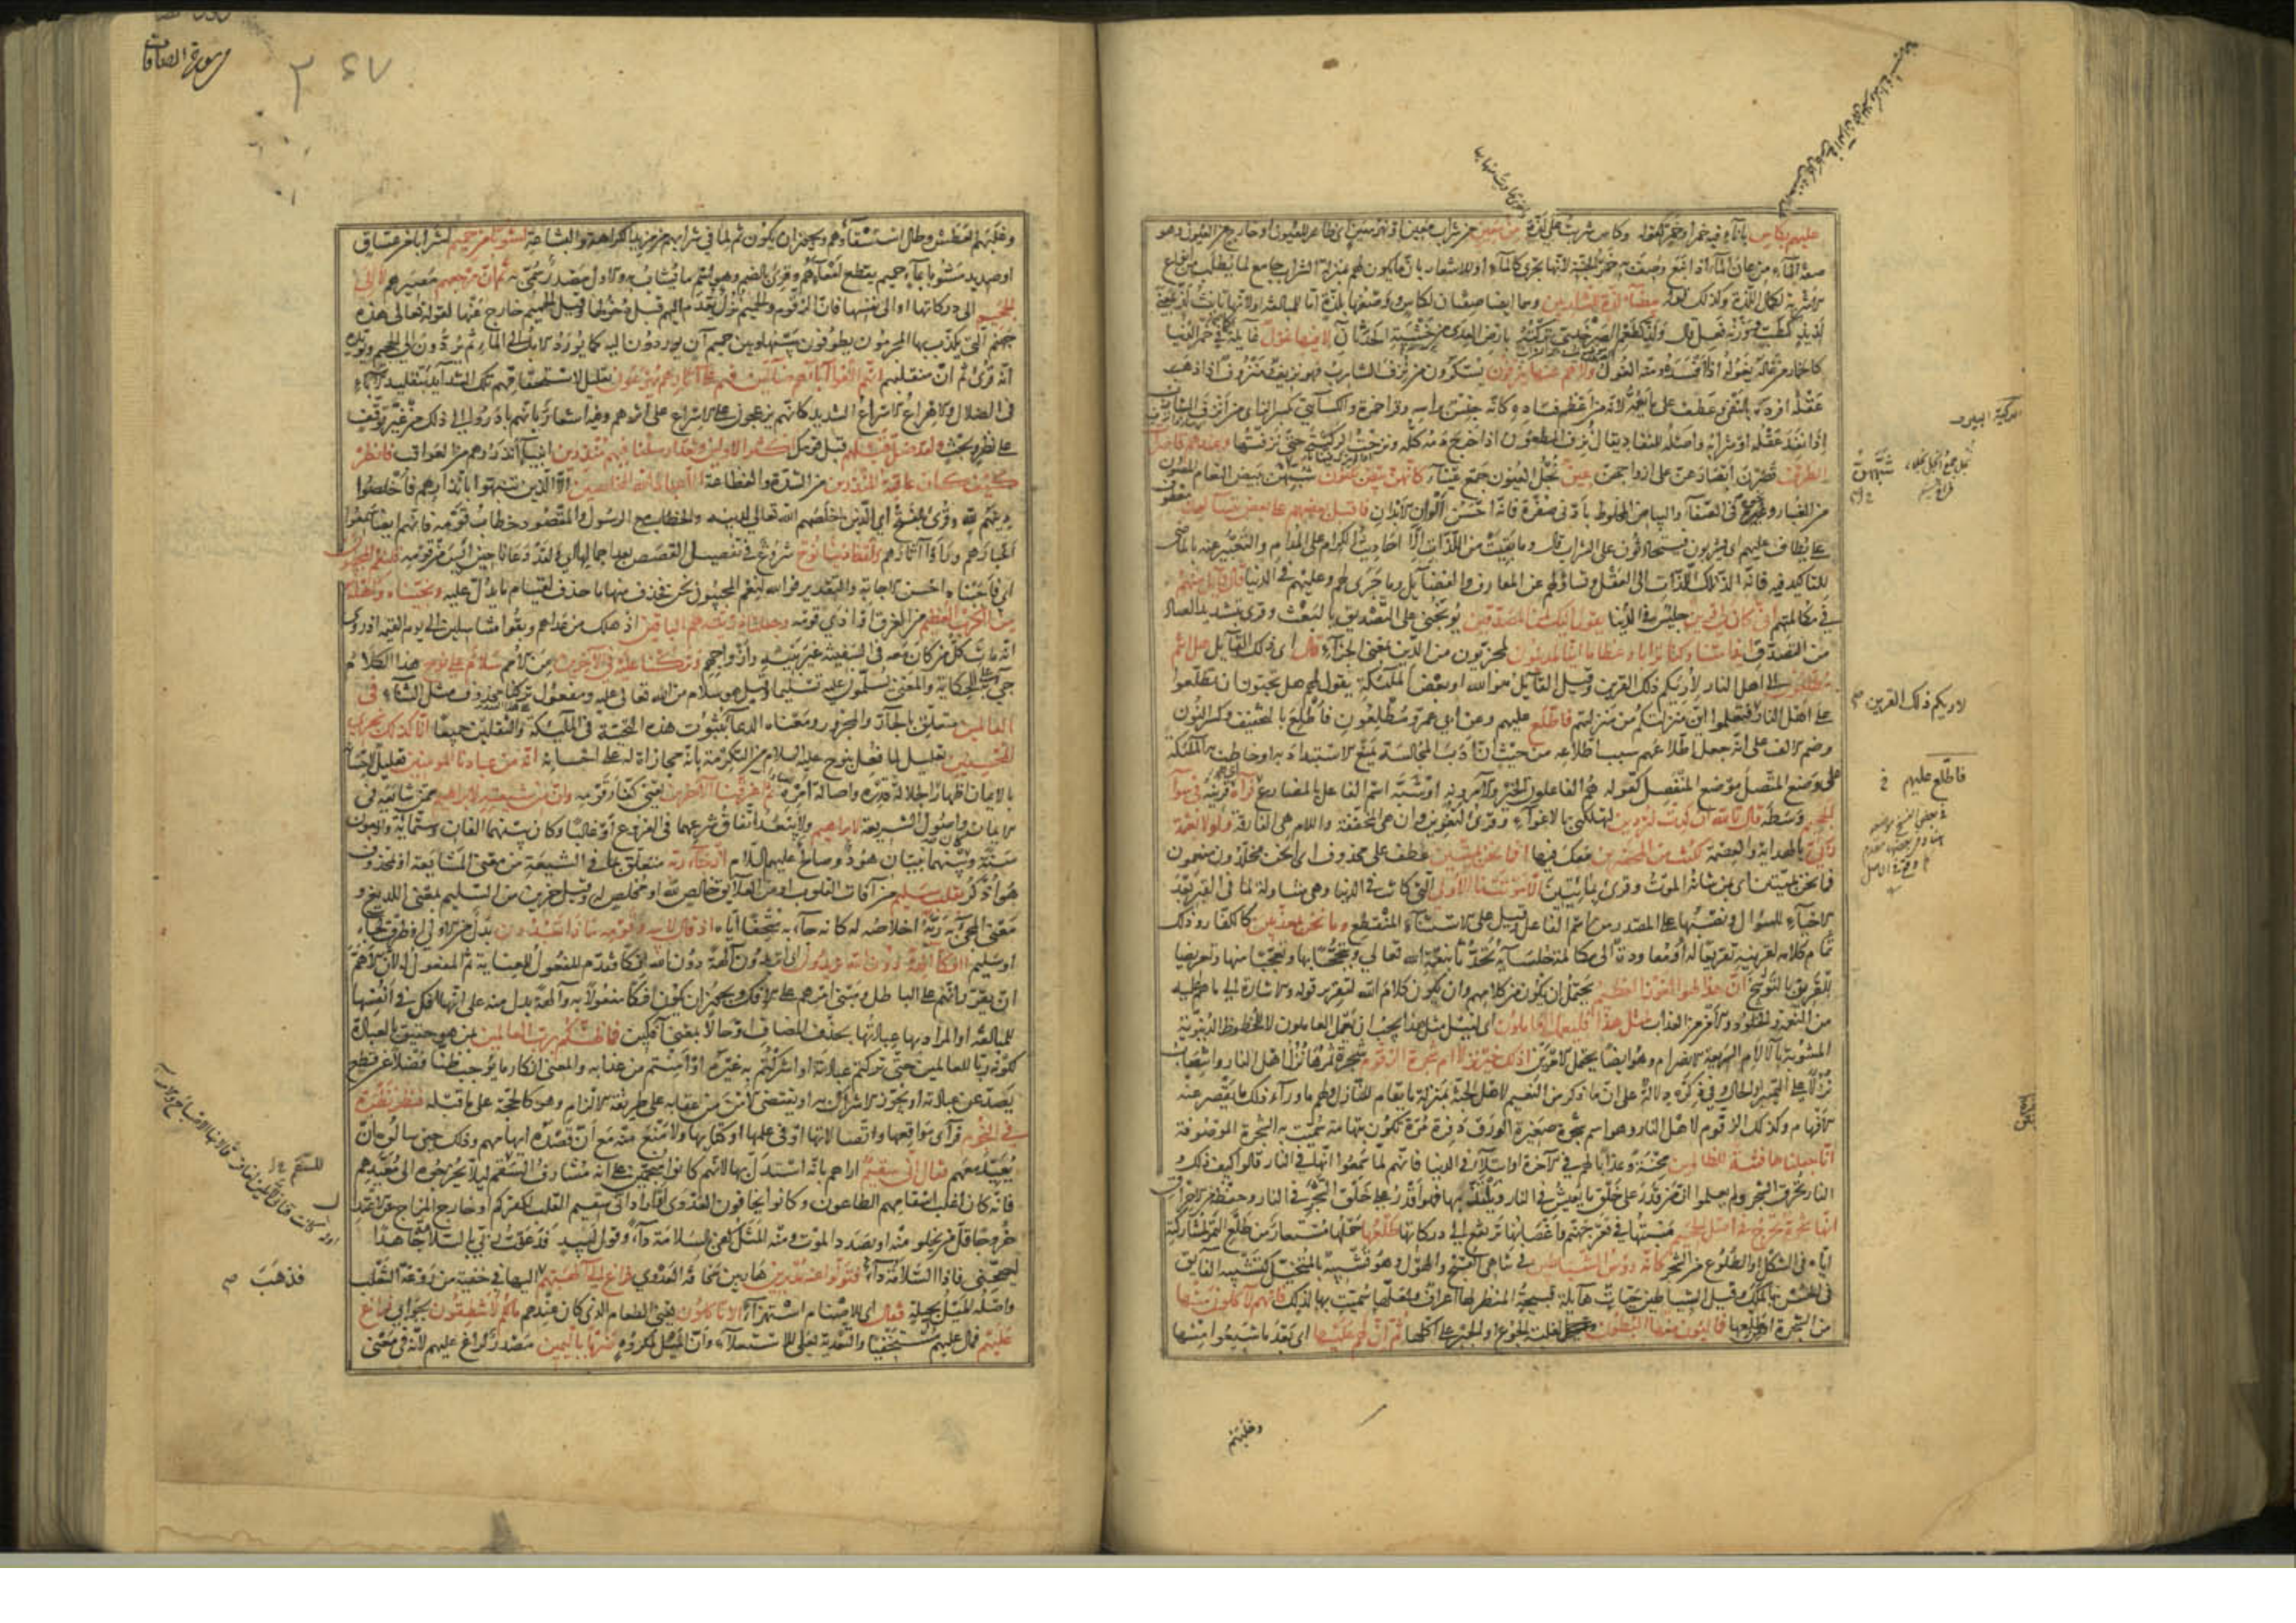 عليهم بكأس باناء فيه خمر او خمر كقوله وكأس شربت على لذة من معين من شراب معين او نهر معين اى ظاهر للعيون او خارج من العيون وهو
صفة الماء من عان الماء اذا نبع وصف به خمر الجنة لانها تجرى كالماء او للاشعار بان ما يكون لهم بمنزلة الشراب جامع لما يطلب من انواع
الاشربة لكمال اللذة وكذلك قوله بيضاء لذة للشاربين وهما ايضا صفتان لكاس ووصفها بلذة اما للمبالغة او لانها تانيث لذ بمعنى
لذيذ كطب ووزنه فعل قال ولذ كطعم الصرخدى تركته بارض العدى من خشية الحدثان لا فيها غول غايلة كما فى خمر الدنيا
كالخمار من غاله يغوله اذا افسده ومنه الغول ولا هم عنها ينزفون يسكرون من نزف الشارب فهو نزيف ومنزوف اذا ذهب
عقله افرده بالنفى وعطفه على ما يعمه لانه من اعظم فساده كانه جنس براسه وقرا حمزة والكسائى بكسر الزاى من انزف الشارب
اذا نفد عقله او شرابه واصله للنفاد يقال نزف المطعون اذا خرج دمه كله ونزحت الركية حتى نزفتها وعندهم قاصرات
الطرف قصرن ابصارهن على ازواجهن عين نجل العيون جمع عيناء كانهن بيض مكنون شبههن ببيض النعام المصون
من الغبار ونحوه فى الصفاء والبياض المخلوط بادنى صفرة فانه احسن الوان الابدان فاقبل بعضهم على بعض يتسائلون
على يطاف عليهم اى يشربون فيتحادثون على الشراب قال وما بقيت من اللذات الا احاديث الكرام على المدام والتعبير عنه بالماضى
للتاكيد فيه فانه الذ تلك اللذات الى العقل وتساؤلهم عن المعارف والفضايل وما جرى لهم وعليهم فى الدنيا قال قائل منهم
فى مكالمتهم انى كان لى قرين جليس فى الدنيا يقول ائنك لمن المصدقين يوبخنى على التصديق بالبعث وقرى بتشديد الصاد
من التصدق ائذا متنا وكنا ترابا وعظاما ائنا لمدينون لمجزيون من الدين بمعنى الجزاء قال اى ذلك القائل هل انتم
مطلعون الى اهل النار لاريكم ذلك القرين وقيل القائل هو الله او بعض الملئكة يقول لهم هل تحبون ان تطلعوا
على اهل النار فتعلموا اين منزلتكم من منزلتهم فاطلع عليهم وعن ابى عمرو مطلعون فاطلع بالتخفيف وكسر النون
وضم الالف على انه جعل اطلاعهم سبب اطلاعه من حيث ان ادب المجالسة يمنع الاستبداد به او خاطب به الملئكة
على وضع المتصل موضع المنفصل كقوله هم الفاعلون الخير والآمرونه او شبه اسم الفاعل بالمضارع فرآه قرينه فى سواء
الجحيم وسطه قال تالله ان كدت لتردين لتهلكنى بالاغواء وقرى لتغوين وان هى المخففة واللام هى الفارقة ولولا نعمة
ربى بالهداية والعصمة لكنت من المحضرين معك فيها افما نحن بميتين عطف على محذوف اى انحن مخلدون منعمون
فما نحن بميتين اى بمن شانه الموت وقرى بمائتين الا موتتنا الاولى التى كانت فى الدنيا وهى متناولة لما فى القبر بعد
الاحياء للسؤال ونصبها على المصدر من اسم الفاعل وقيل على الاستثناء المنقطع وما نحن بمعذبين كالكفار وذلك
تمام كلامه لقرينه تقريعا له او معاودة الى مكالمة جلسائه تحدثا بنعمة الله تعالى وتبجحا بها وتعجبا منها وتعريضا
للقرين بالتوبيخ ان هذا لهو الفوز العظيم يحتمل ان يكون من كلامهم وان يكون كلام الله لتقرير قوله والاشارة الى ما هم عليه
من النعمة والخلود والامن من العذاب لمثل هذا فليعمل العاملون اى لنيل مثل هذا يجب ان يعمل العاملون لا للحظوظ الدنيوية
المشوبة بالآلام السريعة الانصرام وهو ايضا يحتمل الامرين اذلك خير نزلا ام شجرة الزقوم شجرة ثمرها نزل اهل النار وانتصاب
نزلا على التمييز او الحال وفى ذكره دلالة على ان ما ذكر من النعيم لاهل الجنة بمنزلة ما يقام للنازل ولهم ما وراء ذلك ما يقصر عنه
الافهام وكذلك الزقوم لاهل النار وهو اسم شجرة صغيرة الورق ذفرة مرة تكون بتهامة سميت به الشجرة الموصوفة
انا جعلناها فتنة للظالمين محنة وعذابا لهم فى الآخرة او ابتلاء فى الدنيا فانهم لما سمعوا انها فى النار قالوا كيف ذلك و
النار تحرق الشجر ولم يعلموا ان من قدر على خلق ما يعيش فى النار ويلتذ بها فهو اقدر على خلق الشجر فى النار وحفظه من الاحراق
انها شجرة تخرج فى اصل الجحيم منبتها فى قعر جهنم واغصانها ترتفع الى دركاتها طلعها حملها مستعار من طلع التمر لمشاركته
اياه فى الشكل او الطلوع من الشجر كانه رؤس الشياطين فى تناهى القبح والهول وهو تشبيه بالمتخيل كتشبيه الفايق
فى الحسن بالملك وقيل الشياطين حيات هايلة قبيحة المنظر لها اعراف ولعلها سميت بها لذلك فانهم لآكلون منها
من الشجرة او طلعها فمالئون منها البطون لغلبة الجوع او الجبر على اكلها ثم ان لهم عليها اى بعد ما شبعوا منها
وغلبهم
الركية البير
شبههن
لاريكم ذلك القرين
فاطلع عليهم
سورة الصافات
٣٦٧
وغلبهم العطش وطال استسقاؤهم ويجوز ان يكون ثم لما فى شرابهم من مزيد الكراهة والبشاعة لشوبا من حميم لشرابا من غساق
او صديد مشوبا بماء حميم يقطع امعاءهم وقرى بالضم وهو اسم ما يشاب به والاول مصدر سمى به ثم ان مرجعهم مصيرهم لالى
الجحيم الى دركاتها او الى نفسها فان الزقوم والحميم نزل يقدم اليهم قبل دخولها وقيل الحميم خارج عنها لقوله تعالى هذه
جهنم التى يكذب بها المجرمون يطوفون بينها وبين حميم آن يوردون اليه كما يورد الابل الى الماء ثم يردون الى الجحيم ويؤيده
انه قرى ثم ان منقلبهم انهم الفوا آباءهم ضالين فهم على آثارهم يهرعون تعليل لاستحقاقهم تلك الشدايد بتقليد الآباء
فى الضلال والاهراع الاسراع الشديد كانهم يزعجون على الاسراع على اثرهم وفيه اشعار بانهم بادروا الى ذلك من غير توقف
على نظر وبحث ولقد ضل قبلهم قبل قومك اكثر الاولين ولقد ارسلنا فيهم منذرين انبياء انذروهم من العواقب فانظر
كيف كان عاقبة المنذرين من الشدة والفظاعة الا عباد الله المخلصين الا الذين تنبهوا بانذارهم فاخلصوا
دينهم لله وقرى بالفتح اى الذين اخلصهم الله تعالى لدينه والخطاب مع الرسول والمقصود خطاب قومه فانهم ايضا سمعوا
اخبارهم ورأوا آثارهم ولقد نادينا نوح شروع فى تفصيل القصص بعد اجمالها اى ولقد دعانا حين ايس من قومه فلنعم المجيبون
اى فاجبناه احسن الاجابة والتقدير فوالله لنعم المجيبون نحن فحذف منها ما حذف لقيام ما يدل عليه ونجيناه واهله
من الكرب العظيم من الغرق او اذى قومه وجعلنا ذريته هم الباقين اذ هلك من عداهم وبقوا متناسلين الى يوم القيمة اذ روى
انه مات كل من كان معه فى السفينة غير بنيه وازواجهم وتركنا عليه فى الآخرين من الامم سلام على نوح هذا الكلام
جئ به على الحكاية والمعنى يسلمون عليه تسليما وقيل هو سلام من الله تعالى عليه ومفعول تركنا محذوف مثل الثناء فى
العالمين متعلق بالجار والمجرور ومعناه الدعاء بثبوت هذه التحية فى الملئكة والثقلين جميعا انا كذلك نجزى
المحسنين تعليل لما فعل بنوح عليه السلام من التكرمة بانه مجازاة له على احسانه انه من عبادنا المؤمنين تعليل لاحسانه
بالايمان اظهارا لجلالة قدره واصالة امره ثم اغرقنا الآخرين يعنى كفار قومه وان من شيعته لابراهيم ممن شايعه فى
الايمان واصول الشريعة ولا يبعد اتفاق شرعهما فى الفروع او غالبا وكان بينهما الفان وستمائة واربعون
سنة وبينهما نبيان هود وصالح عليهم السلام اذ جاء ربه متعلق بما فى الشيعة من معنى المشايعة او بمحذوف
هو اذكر بقلب سليم من آفات القلوب او من العلايق خالص لله او مخلص له وقيل حزين من السليم بمعنى اللديغ و
معنى المجئ به ربه اخلاصه له كانه جاء به متحفا اياه اذ قال لابيه وقومه ماذا تعبدون بدل من الاولى او ظرف لجاء
او سليم ائفكا آلهة دون الله تريدون اى تريدون آلهة دون الله افكا فقدم المفعول للعناية ثم المفعول له لان الاهم
ان يقرر انهم على الباطل ومبنى امرهم على الافك ويجوز ان يكون افكا مفعولا به وآلهة بدل منه على انها افك فى انفسها
للمبالغة او المراد بها عبادتها بحذف المضاف او حالا بمعنى آفكين فما ظنكم برب العالمين بمن هو حقيق بالعبادة
لكونه ربا للعالمين حتى تركتم عبادته او اشركتم به غيره او امنتم من عذابه والمعنى انكار ما يوجب ظنا فضلا عن قطع
يصد عن عبادته او يجوز الاشراك به او يقتضى الامن من عقابه على طريقة الالزام وهو كالحجة على ما قبله فنظر نظرة
فى النجوم فرأى مواقعها واتصالاتها او فى علمها او كتابها ولا منع منه مع ان قصده ايهامهم وذلك حين سالوه ان
يعيد معهم فقال انى سقيم اراهم بانه استدل بها لانهم كانوا منجمين على انه مشارف للسقم ليلا يخرجوه الى معيدهم
فانه كان اغلب اسقامهم الطاعون وكانوا يخافون العدوى او اراد انى سقيم القلب لكفركم او خارج المزاج عن الاعتدال
خروجا قل من يخلو منه او بصدد الموت ومنه المثل كفى بالسلامة داء وقول لبيد فدعوت ربى بالسلامة جاهدا
ليصحنى فاذا السلامة داء فتولوا عنه مدبرين هاربين مخافة العدوى فراغ الى آلهتهم اليها فى خفية من روغة الثعلب
واصله الميل بحيلة فقال اى للاصنام استهزاء الا تاكلون يعنى الطعام الذى كان عندهم ما لكم لا تنطقون بجوابى فراغ
عليهم فمال عليهم مستخفيا والتعدية بعلى للاستعلاء وان الميل لمكروه ضربا باليمين مصدر لراغ عليهم لانه فى معنى
للسقم
فذهب